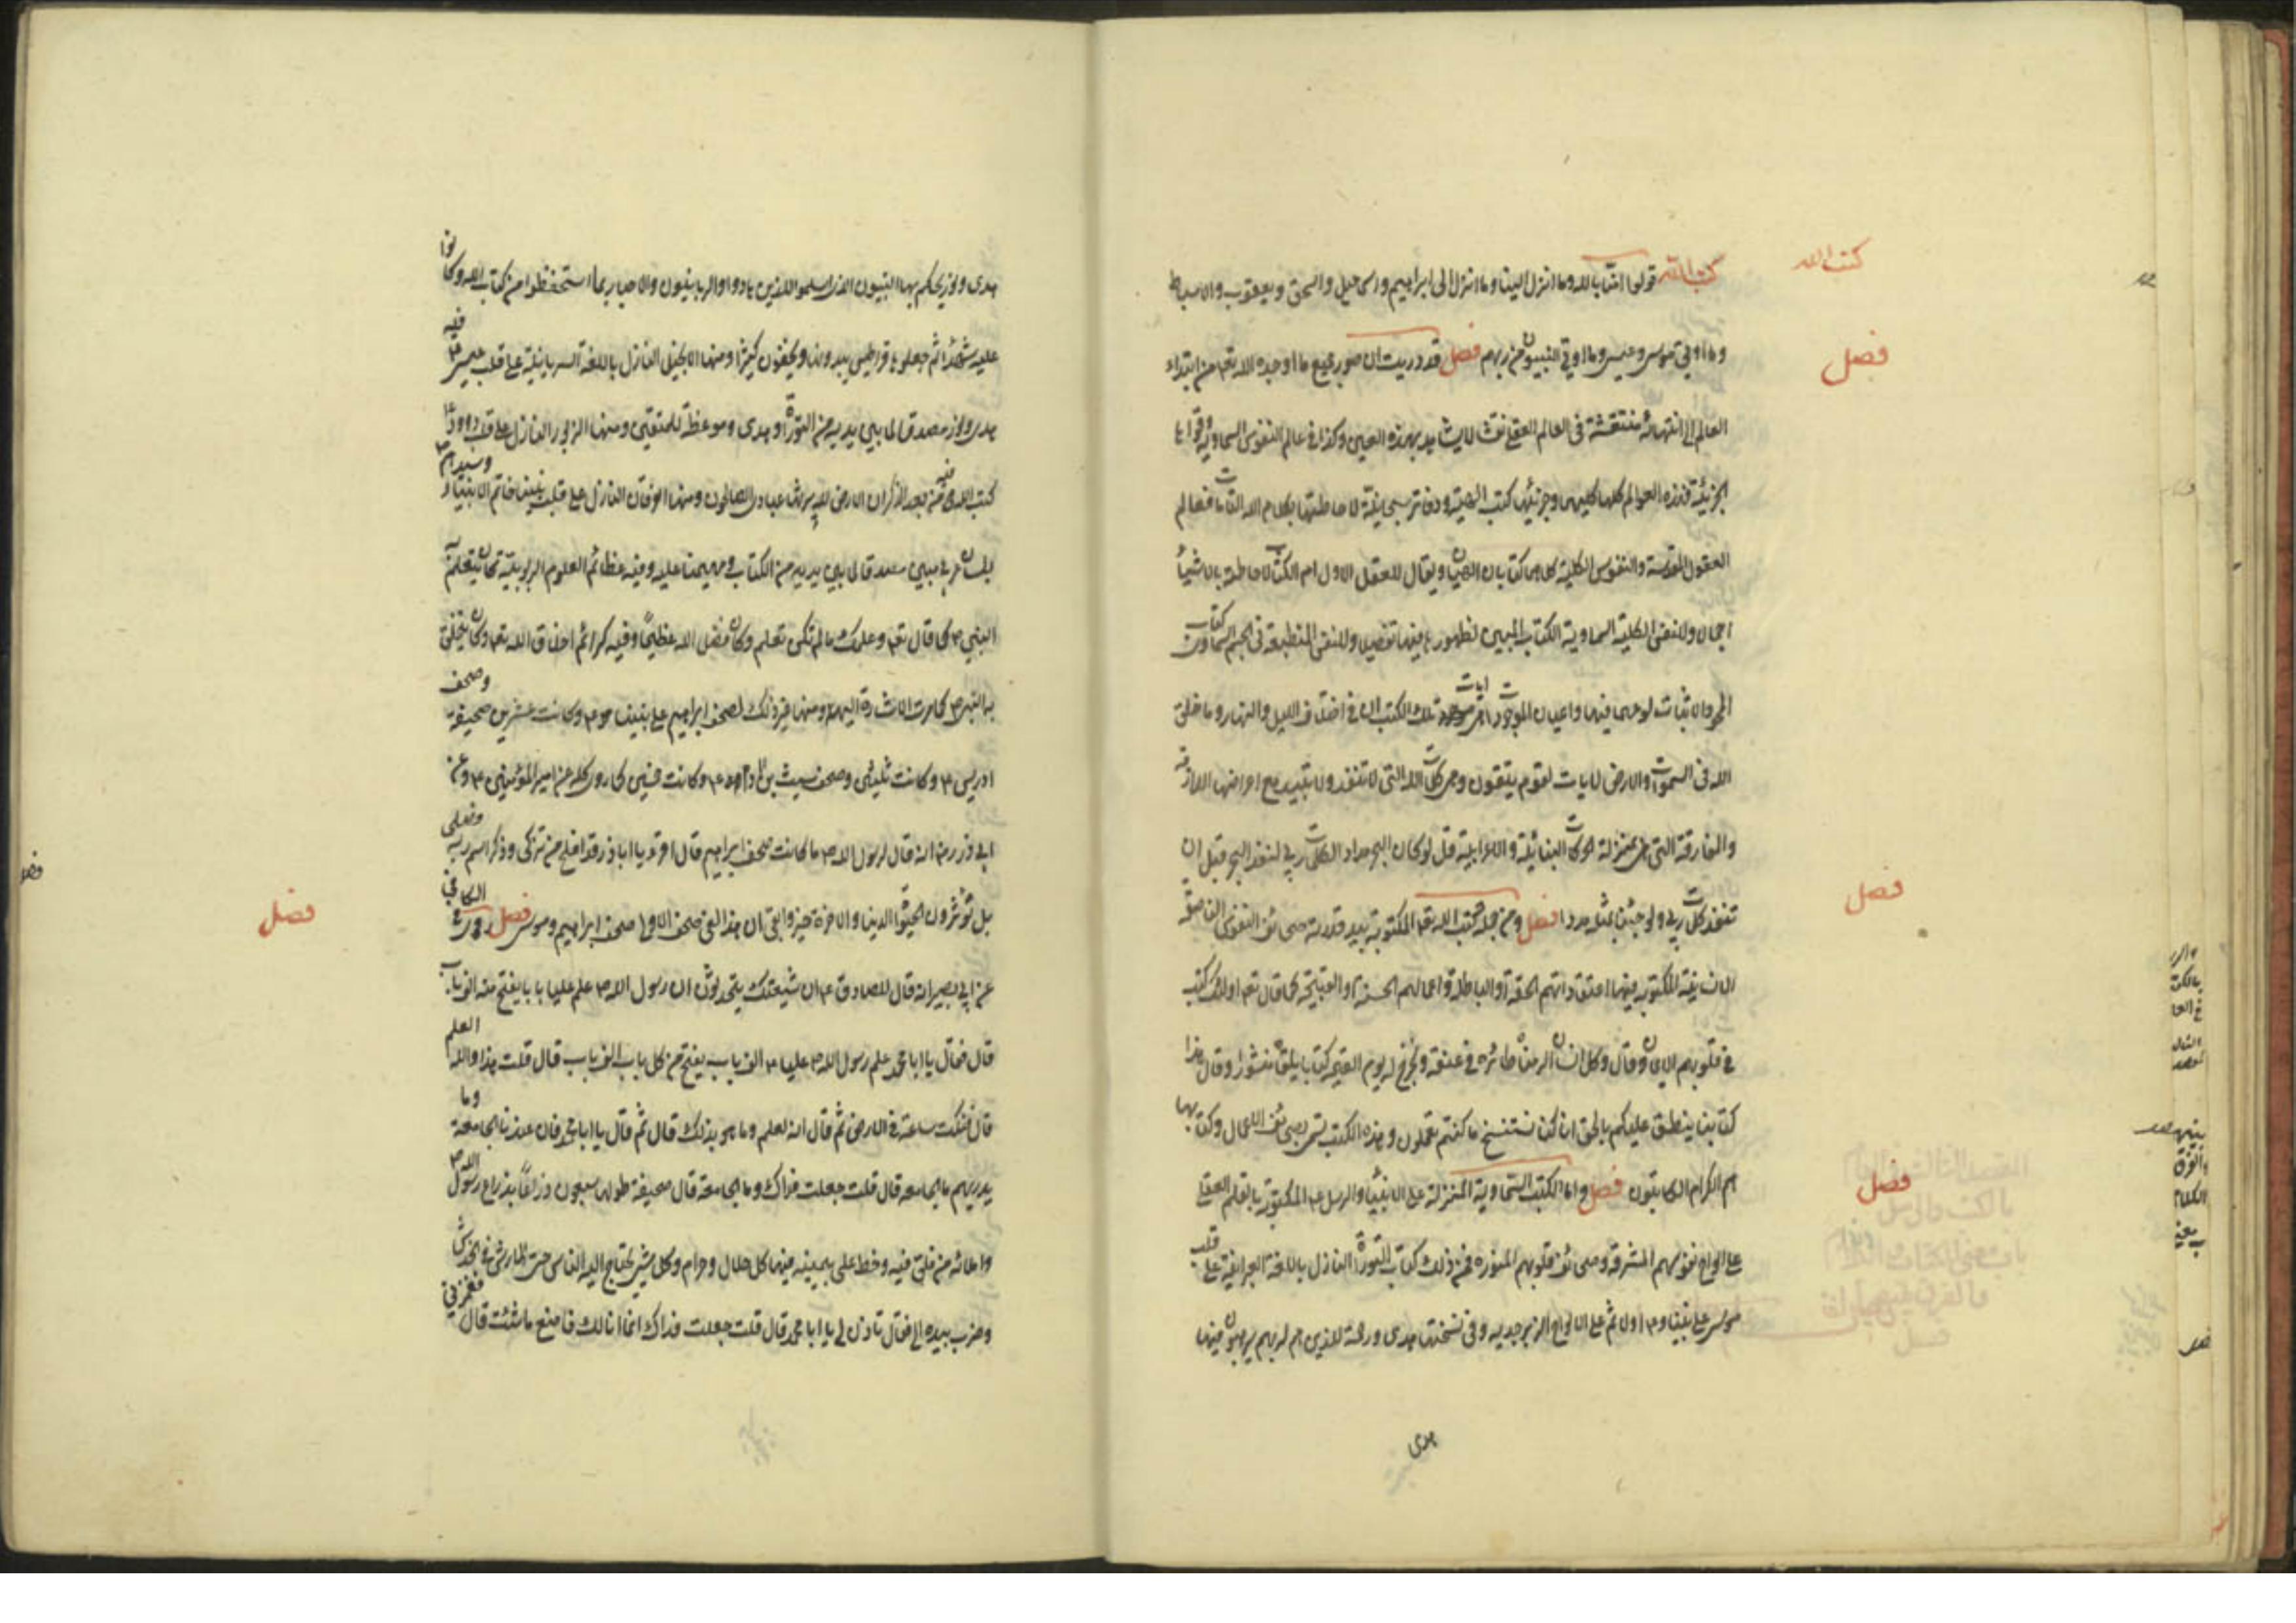 كتب الله
كتب الله قولوا امنا بالله وما انزل الينا وما انزل الى ابراهيم واسمعيل واسحق ويعقوب والاسباط
فصل
وما اوتي موسى وعيسى وما اوتي النبيون من ربهم فصل قد دريت ان صور جميع ما اوجده الله تعم من ابتداء
العالم الى انتهائه منتقشة في العالم العقلي نقشا لا يشاهد بهذه العين وكذا في عالم النفوس السماوية وقواها
الجزئية فهذه العوالم كلها كليها وجزئيها كتب الهية ودفاتر سبحانية لاحاطتها بكلام الله التامات فعالم
العقول المقدسة والنفوس الكلية كلاهما كتابان الهيان ويقال للعقل الاول ام الكتاب لاحاطته بالاشياء
اجمالا وللنفس الكلية السماوية الكتاب المبين لظهورها فيها تفصيلا وللنفس المنطبعة في الجسم السماوي كتاب
المحو والاثبات لوحها فيها واعيان الموجودات ايات تلك الكتب ان في اختلاف الليل والنهار وما خلق
الله في السموات والارض لايات لقوم يتقون وهي كلمات الله التي لا تنفد ولا تبيد مع اعراضها اللازمة
والمفارقة التي هي بمنزلة الحركات البنائية والاعرابية قل لو كان البحر مدادا لكلمات ربي لنفد البحر قبل ان
فصل
تنفد كلمات ربي ولو جئنا بمثله مددا فصل ومن جملة كتب الله تعم المكتوبة بيد قدرته صحائف النفوس الناطقة
الانسانية المكتوبة فيها اعتقاداتهم الحقة او الباطلة واعمالهم الحسنة او القبيحة كما قال تعم اولئك كتب
في قلوبهم الايمان وقال وكل انسان الزمناه طائره في عنقه ونخرج له يوم القيمة كتابا يلقاه منشورا وقال هذا
كتابنا ينطق عليكم بالحق انا كنا نستنسخ ما كنتم تعملون وهذه الكتب تسمى بصحائف الاعمال وكتابها
فصل
هم الكرام الكاتبون فصل واما الكتب السماوية المنزلة على الانبياء والرسل عم المكتوبة بالقلم العقلي
على الواح نفوسهم المشرقة وصحائف قلوبهم المنورة فمن ذلك كتاب التورية النازل باللغة العبرانية على قلب
موسى على نبينا وعم اولا ثم على الالواح الزبرجدية وفي نسختها هدى ورحمة للذين هم لربهم يرهبون فيها
هدى
هدى ونور يحكم بها النبيون الذين اسلموا للذين هادوا والربانيون والاحبار بما استحفظوا من كتاب الله وكانوا
عليه شهداء ثم جعلوها قراطيس يبدونها ويخفون كثيرا ومنها الانجيل النازل باللغة السريانية على قلب عيسى عم فيه
هدى ونور مصدقا لما بين يديه من التورية وهدى وموعظة للمتقين ومنها الزبور النازل على قلب داود عم
كتب الله فيه من بعد الذكر ان الارض لله يرثها عبادي الصالحون ومنها الفرقان النازل على قلب نبينا خاتم الانبياء و
بلسان عربي مبين مصدقا لما بين يديه من الكتاب ومهيمنا عليه وفيه عظائم العلوم الربوبية كان يتعلمه
النبي ص كما قال تعم وعلمك ما لم تكن تعلم وكان فضل الله عظيما وفيه كرائم اخلاق الله تعم وكان يتخلق
به النبي ص كما مرت الاشارة اليهما ومنها غير ذلك لصحف ابراهيم على نبينا وعم وكانت عشرين صحيفة وصحف
ادريس عم وكانت ثلثين وصحف شيث بن ادم عم وكانت خمسين كما روى كله عن امير المؤمنين عم وعن
ابي ذر رض انه قال لرسول الله ص ما كانت صحف ابراهيم قال اقرء يا اباذر قد افلح من تزكى وذكر اسم ربه فصلى
فصل
بل تؤثرون الحيوة الدنيا والاخرة خير وابقى ان هذا لفي صحف الاولى صحف ابراهيم وموسى فصل روى في الكافي
عن ابي بصير انه قال للصادق عم ان شيعتك يتحدثون ان رسول الله ص علم عليا بابا يفتح منه الف باب
قال فقال يا ابا محمد علم رسول الله ص عليا عم الف باب يفتح من كل باب الف باب قال قلت هذا والله العلم
قال فنكت ساعة في الارض ثم قال انه لعلم وما هو بذلك قال ثم قال يا ابا محمد فان عندنا الجامعة وما
يدريهم ما الجامعة قال قلت جعلت فداك وما الجامعة قال صحيفة طولها سبعون ذراعا بذراع رسول الله ص
واملائه من فلق فيه وخط علي بيمينه فيها كل حلال وحرام وكل شيء يحتاج اليه الناس حتى الارش في الخدش
وضرب بيده الي فقال تاذن لي يا ابا محمد قال قلت جعلت فداك انما انا لك فاصنع ما شئت قال فغمزني